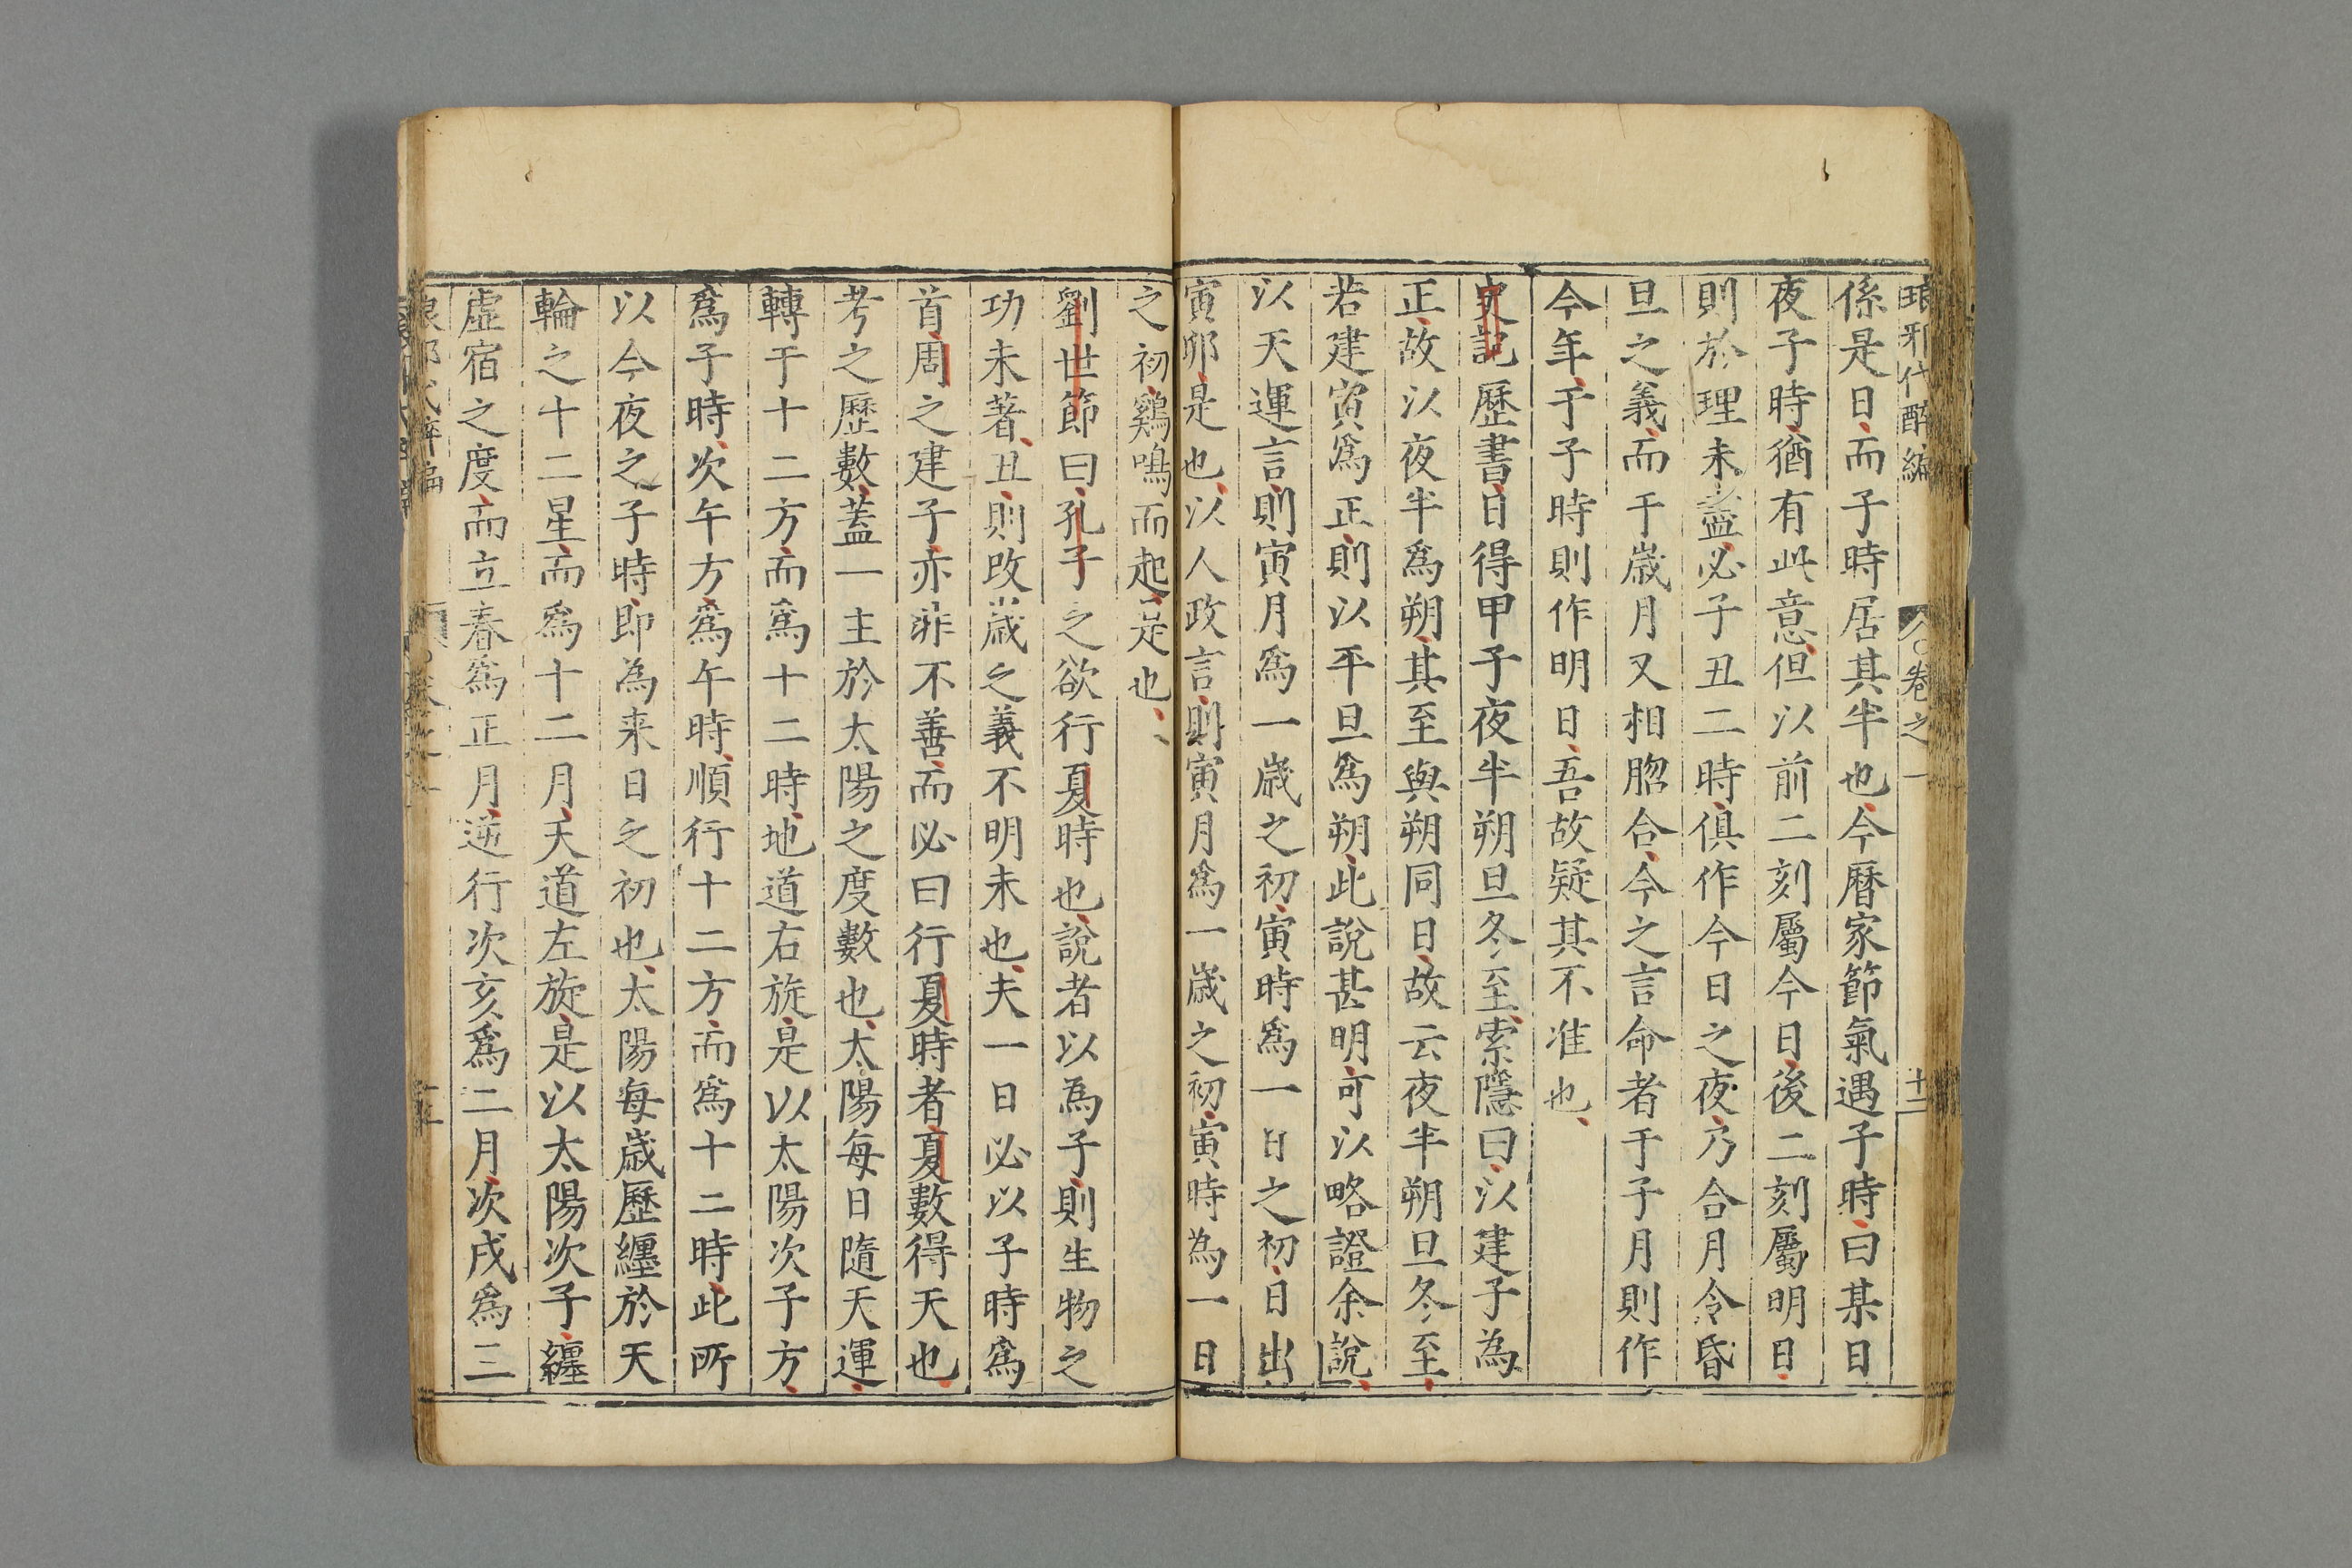 琅邪代醉編 卷之一 十二
係是日而子時居其半也今曆家節氣遇子時曰某日
夜子時猶有此意但以前二刻屬今日後二刻屬明日
則於理未盡必子丑二時俱作今日之夜乃合月令昏
旦之義而于歲月又相脗合今之言命者于子月則作
今年于子時則作明日吾故疑其不准也
史記歷書曰得甲子夜半朔旦冬至索隱曰以建子為
正故以夜半爲朔其至與朔同日故云夜半朔旦冬至
若建寅爲正則以平旦爲朔此說甚明可以略證余說
以天運言則寅月爲一歲之初寅時爲一日之初日出
寅卯是也以人政言則寅月爲一歲之初寅時為一日
之初鷄鳴而起是也
劉世節曰孔子之欲行夏時也說者以為子則生物之
功未著丑則改歲之義不明未也夫一日必以子時爲
首周之建子亦非不善而必曰行夏時者夏數得天也
考之歷數蓋一主於太陽之度數也太陽每日隨天運
轉于十二方而爲十二時地道右旋是以太陽次子方
爲子時次午方爲午時順行十二方而爲十二時此所
以今夜之子時即為来日之初也太陽每歲歷纏於天
輪之十二星而爲十二月天道左旋是以太陽次子纏
虛宿之度而立春爲正月逆行次亥爲二月次戌爲三